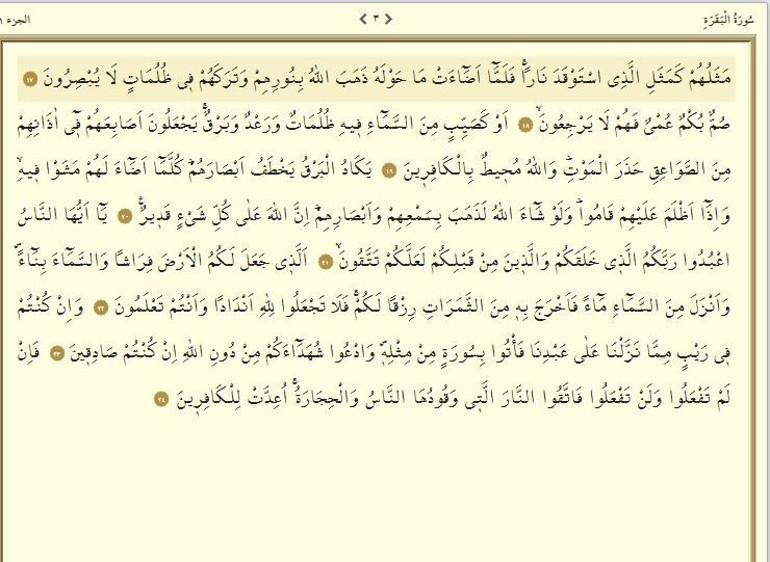 سُورَةُ الْبَقَرَةِ ٣ الجزء ١
مَثَلُهُمْ كَمَثَلِ الَّذِى اسْتَوْقَدَ نَارًاۚ فَلَمَّٓا اَضَٓاءَتْ مَا حَوْلَهُ ذَهَبَ اللّٰهُ بِنُورِهِمْ وَتَرَكَهُمْ ف۪ى ظُلُمَاتٍ لَا يُبْصِرُونَ ١٧
صُمٌّ بُكْمٌ عُمْىٌ فَهُمْ لَا يَرْجِعُونَۙ ١٨ اَوْ كَصَيِّبٍ مِنَ السَّمَٓاءِ ف۪يهِ ظُلُمَاتٌ وَرَعْدٌ وَبَرْقٌۚ يَجْعَلُونَ اَصَابِعَهُمْ ف۪ٓى اٰذَانِهِمْ
مِنَ الصَّوَاعِقِ حَذَرَ الْمَوْتِۜ وَاللّٰهُ مُح۪يطٌ بِالْكَافِر۪ينَ ١٩ يَكَادُ الْبَرْقُ يَخْطَفُ اَبْصَارَهُمْۜ كُلَّمَٓا اَضَٓاءَ لَهُمْ مَشَوْا ف۪يهِۙ
وَاِذَٓا اَظْلَمَ عَلَيْهِمْ قَامُواۜ وَلَوْ شَٓاءَ اللّٰهُ لَذَهَبَ بِسَمْعِهِمْ وَاَبْصَارِهِمْۜ اِنَّ اللّٰهَ عَلٰى كُلِّ شَىْءٍ قَد۪يرٌ۟ ٢٠ يَٓا اَيُّهَا النَّاسُ
اعْبُدُوا رَبَّكُمُ الَّذ۪ى خَلَقَكُمْ وَالَّذ۪ينَ مِنْ قَبْلِكُمْ لَعَلَّكُمْ تَتَّقُونَۙ ٢١ اَلَّذ۪ى جَعَلَ لَكُمُ الْاَرْضَ فِرَاشًا وَالسَّمَٓاءَ بِنَٓاءًۖ
وَاَنْزَلَ مِنَ السَّمَٓاءِ مَٓاءً فَاَخْرَجَ بِه۪ مِنَ الثَّمَرَاتِ رِزْقًا لَكُمْۚ فَلَا تَجْعَلُوا لِلّٰهِ اَنْدَادًا وَاَنْتُمْ تَعْلَمُونَ ٢٢ وَاِنْ كُنْتُمْ
ف۪ى رَيْبٍ مِمَّا نَزَّلْنَا عَلٰى عَبْدِنَا فَأْتُوا بِسُورَةٍ مِنْ مِثْلِه۪ۖ وَادْعُوا شُهَدَٓاءَكُمْ مِنْ دُونِ اللّٰهِ اِنْ كُنْتُمْ صَادِق۪ينَ ٢٣ فَاِنْ
لَمْ تَفْعَلُوا وَلَنْ تَفْعَلُوا فَاتَّقُوا النَّارَ الَّت۪ى وَقُودُهَا النَّاسُ وَالْحِجَارَةُۚ اُعِدَّتْ لِلْكَافِر۪ينَ ٢٤